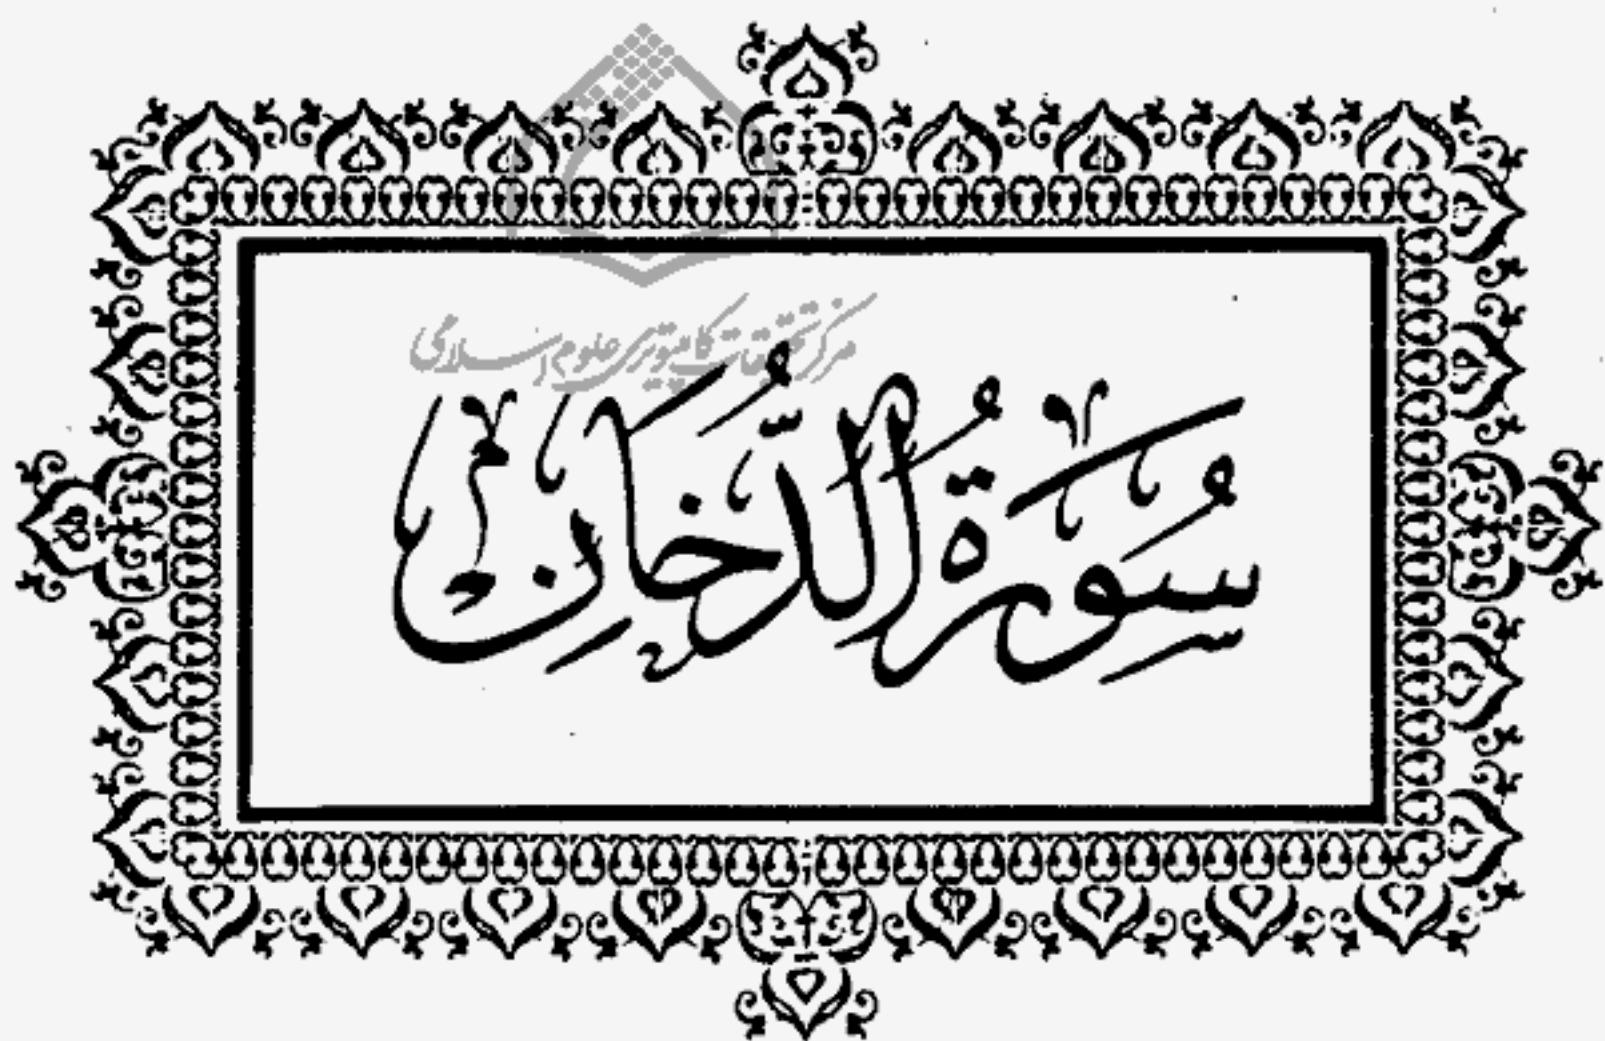 مرکز تحقیقات کامپیوتری علوم اسلامی
سُورَةُ الدُّخَانِ